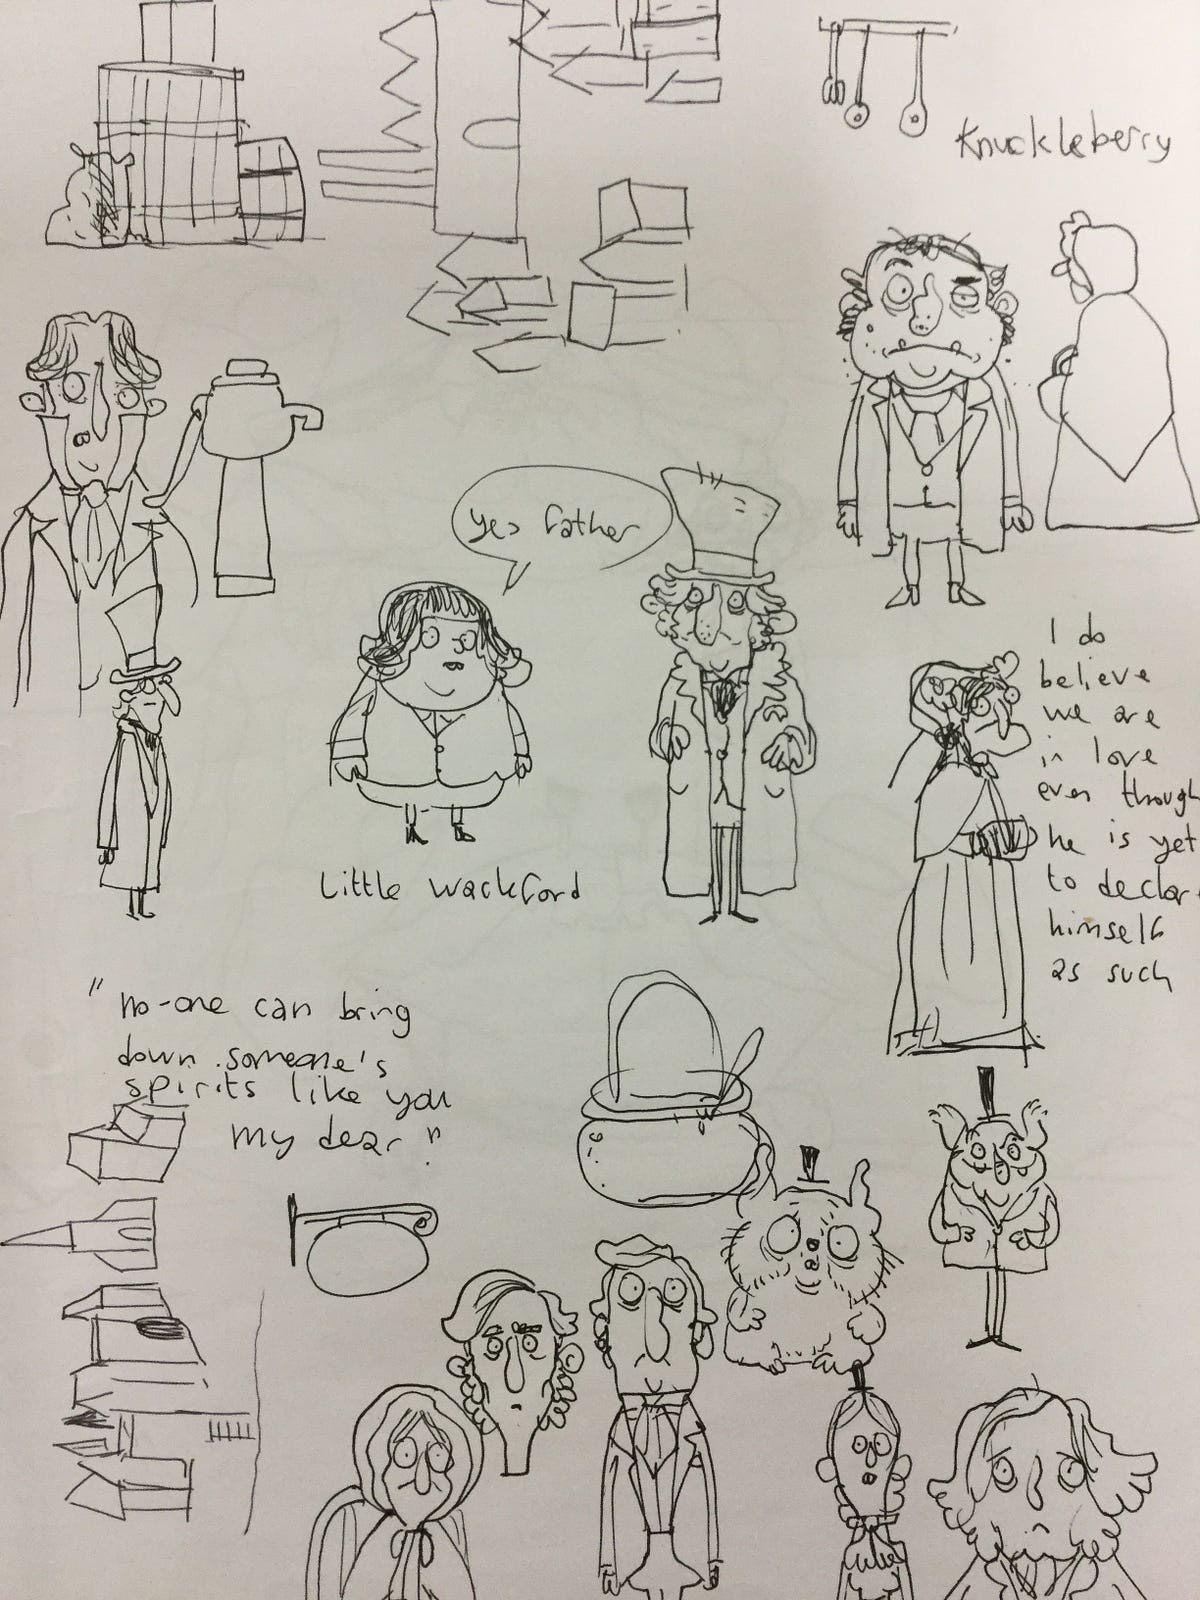 Knuckleberry
yes father
I do
believe
we are
in love
even though
he is yet
to declare
himself
as such
Little Wackford
"no-one can bring
down someone's
spirits like you
my dear"